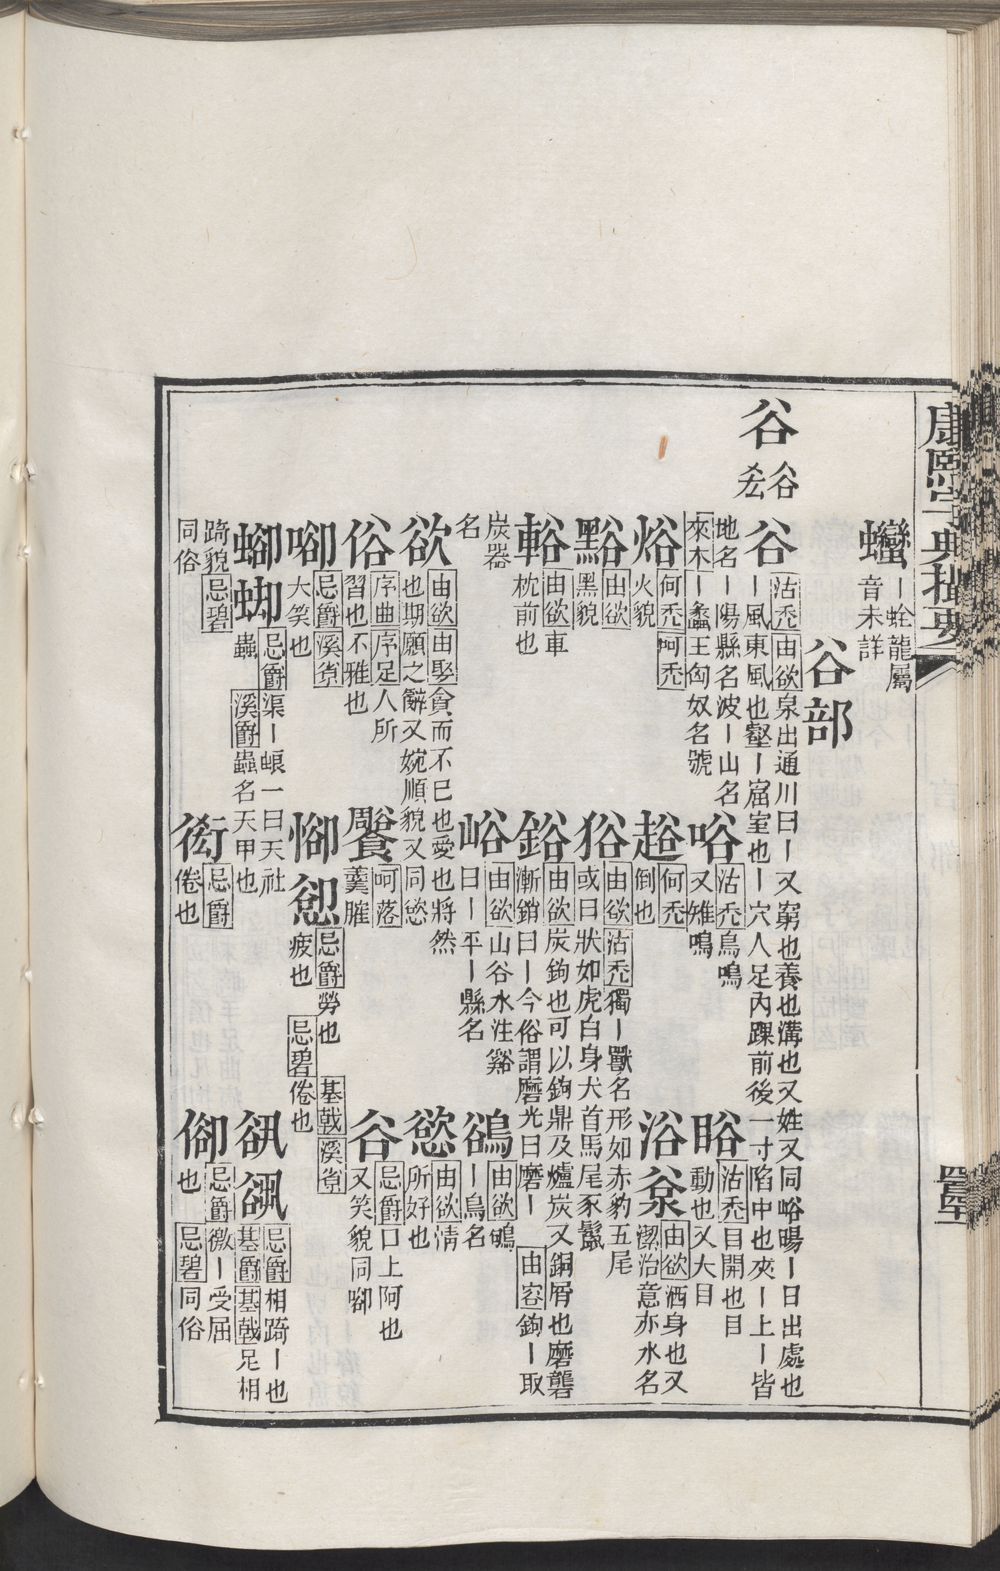 康熙字典撮要
蠻 ｜蛉龍屬
音未詳
谷部
谷 谷
谷 沽禿 由欲 泉出通川曰｜又窮也養也溝也又姓又同峪暘｜日出處也
｜風東風也壑｜窟室也｜穴人足內踝前後一寸陷中也夾｜上｜皆
地名｜陽縣名波｜山名
來木 ｜蠡王匈奴名號
㕡 沽禿 鳥鳴
又雉鳴
𥇦 沽禿 目開也目
動也又大目
焀 何禿 呵禿
火貌
趤 何禿
倒也
浴 由欲 洒身也又
潔治意亦水名
黣 由欲
黑貌
狢 由欲 沽禿 獨｜獸名形如赤豹五尾
或曰狀如虎白身犬首馬尾豕鬣
輍 由欲 車
枕前也
鋊 由欲 炭鉤也可以鉤鼎及爐炭又銅屑也磨礱
漸銷曰｜今俗謂磨光曰磨｜ 由容 鉤｜取
炭器
峪 由欲 山谷水注谿
曰｜平｜縣名
鵒 由欲 鴝
｜鳥名
欲 由欲 由娶 貪而不已也愛也將然
也期願之辭又婉順貌又同慾
慾 由欲 情
所好也
俗 序曲 序足 人所
習也不雅也
呵落
羹臛
谷 忌爵 口上阿也
又笑貌同啣
啣 忌爵 溪㕡
大笑也
忌爵 勞也 基戟 溪㕡
疲也 忌碧 倦也
忌爵 渠｜螂一曰天社
蟲 溪爵 蟲名天甲也
忌爵 相踦｜也
基爵 基戟 足相
踦貌 忌碧
同俗
忌爵
倦也
忌爵 微｜受屈
也 忌碧 同俗